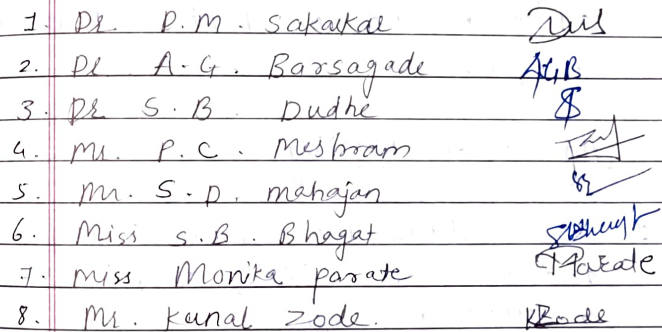 1. Dr P.M. Sakarkar
2. Dr A.G. Barsagade AGB
3. Dr S.B Dudhe
4. Mr. P.C. Meshram
5. Mr. S.D. Mahajan
6. Miss S.B. Bhagat SBBhagat
7. Miss Monika Parate MParate
8. Mr. Kunal Zode. KZode